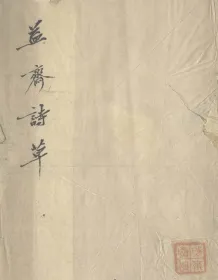 益齋詩草